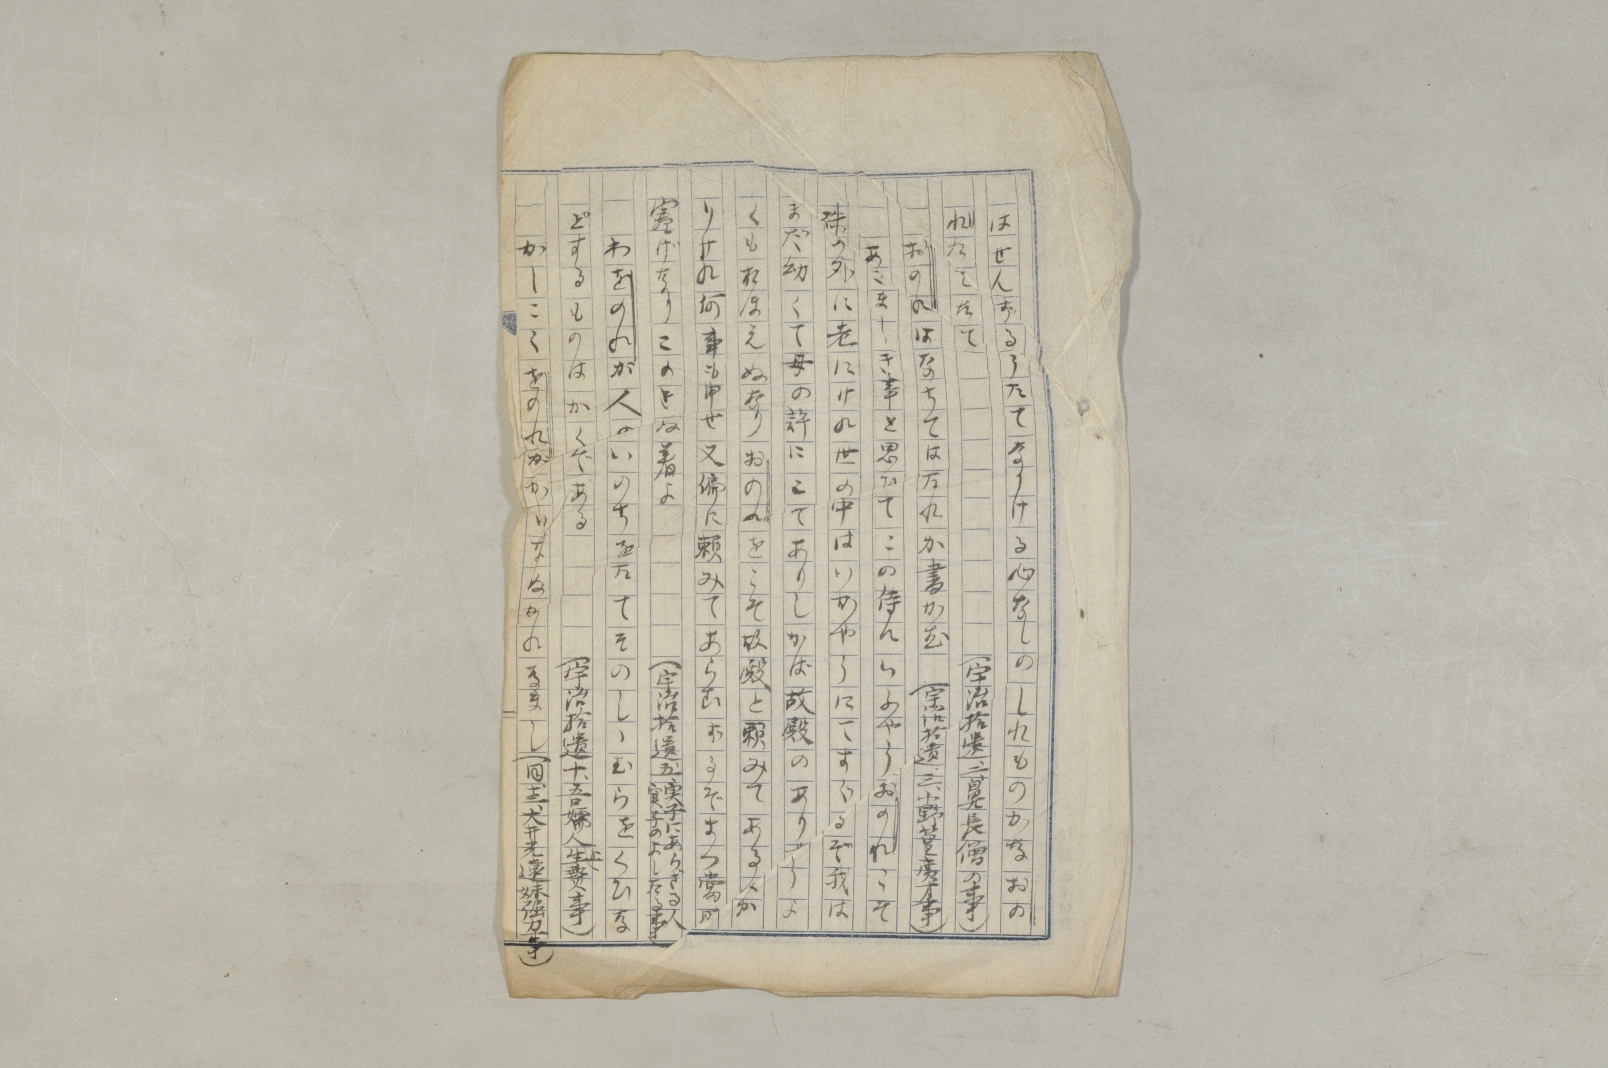 はせんずるうたてなりける心なしのしれものかなおの
れたこそたて　（宇治拾遺二、鼻長僧の事）
おのれはなちてはたれか書かむ（宇治拾遺三、小野篁廣才事）
あさましき事と思ひてこの侍んらふやうおのれこそ
殊の外に老にけれ世の中はいかやうにてすぐるぞ我は
まだ幼くて母の許にこてありしかば故殿のありしう
くもおぼえぬなりおのれをこそ故殿と頼みてあるべか
りけれ何事も申せ又偏に頼みてあらむするぞまつ當時
寒げなりこのきぬ着よ（宇治拾遺五、実子にあらざる人実子のよししたる事）
わをのれが人のいのちをたてそのしゝむらをくひな
どするものはかくぞある（宇治拾遺十、吾嬬人生贄事）
かしこくをのれがかいなぬかれなまし（同十三、大井光遠妹強力事）